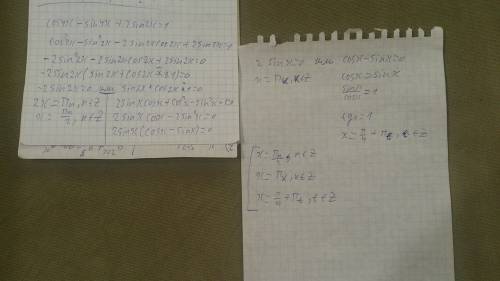 cos4x - sin4x + 2sin2x = 1
cos²2x - sin²2x - 2sin2x cos2x + 2sin2x =
-2sin²2x - 2sin2x cos2x + 2sin2x = 0
-2sin2x (sin2x + cos2x
-2sin2x = 0 или sin2x + cos2x
2x = πn, n∈Z
2sinx cosx + cos²x - sin²x
x = πn/2, n∈Z
2sinx cosx - 2sin²x = 0
2sinx (cosx - sinx) = 0
2sinx = 0 или cosx - sinx = 0
x = πk, k∈Z
cosx = sinx
sinx/cosx = 1
tgx = 1
x = π/4 + πt, t∈Z
x = πn/2, n∈Z
x = πk, k∈Z
x = π/4 + πt, t∈Z